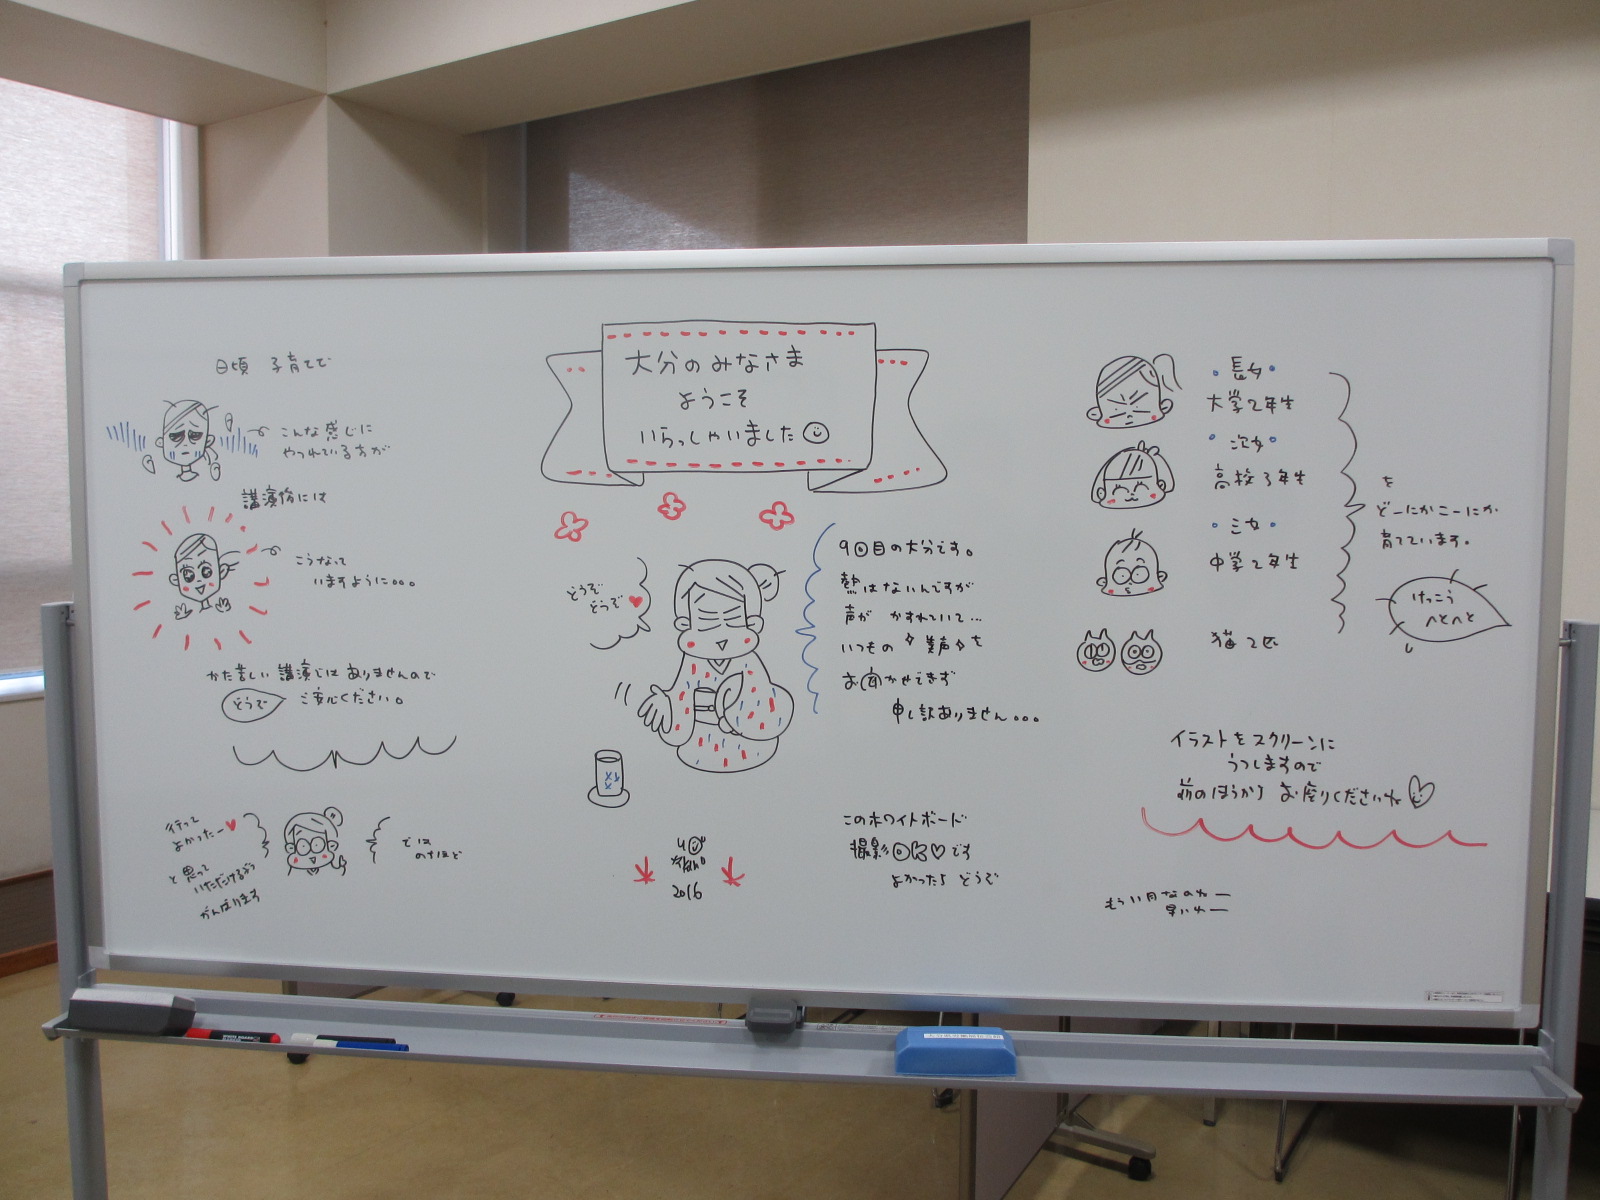 大分のみなさま
ようこそ
いらっしゃいました
日頃 子育てで
こんな感じに
やつれている方が
講演後には
こうなって
いますように。。。
かた苦しい 講演じゃ ありませんので
どうぞ
ご安心ください。
行って
よかったー
と 思って
いただけるよう
がんばります
では
のちほど
どうぞ
どうぞ
9回目の大分です。
熱はないんですが
声が かすれていて…
いつもの 美声を
お聞かせできず
申し訳ありません。。。
2016
このホワイトボード
撮影OKです
よかったら どうぞ
・長女・
大学2年生
・次女・
高校3年生
・三女・
中学2年生
猫2匹
を
どーにかこーにか
育てています。
けっこう
へとへと
イラストをスクリーンに
うつしますので
前のほうから お座りくださいね
早いわー